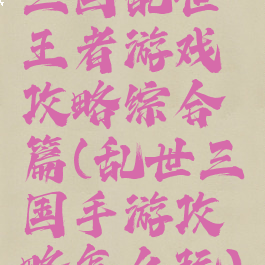 三国乱世
王者游戏
攻略综合
篇(乱世三
国手游攻
略怎么玩)